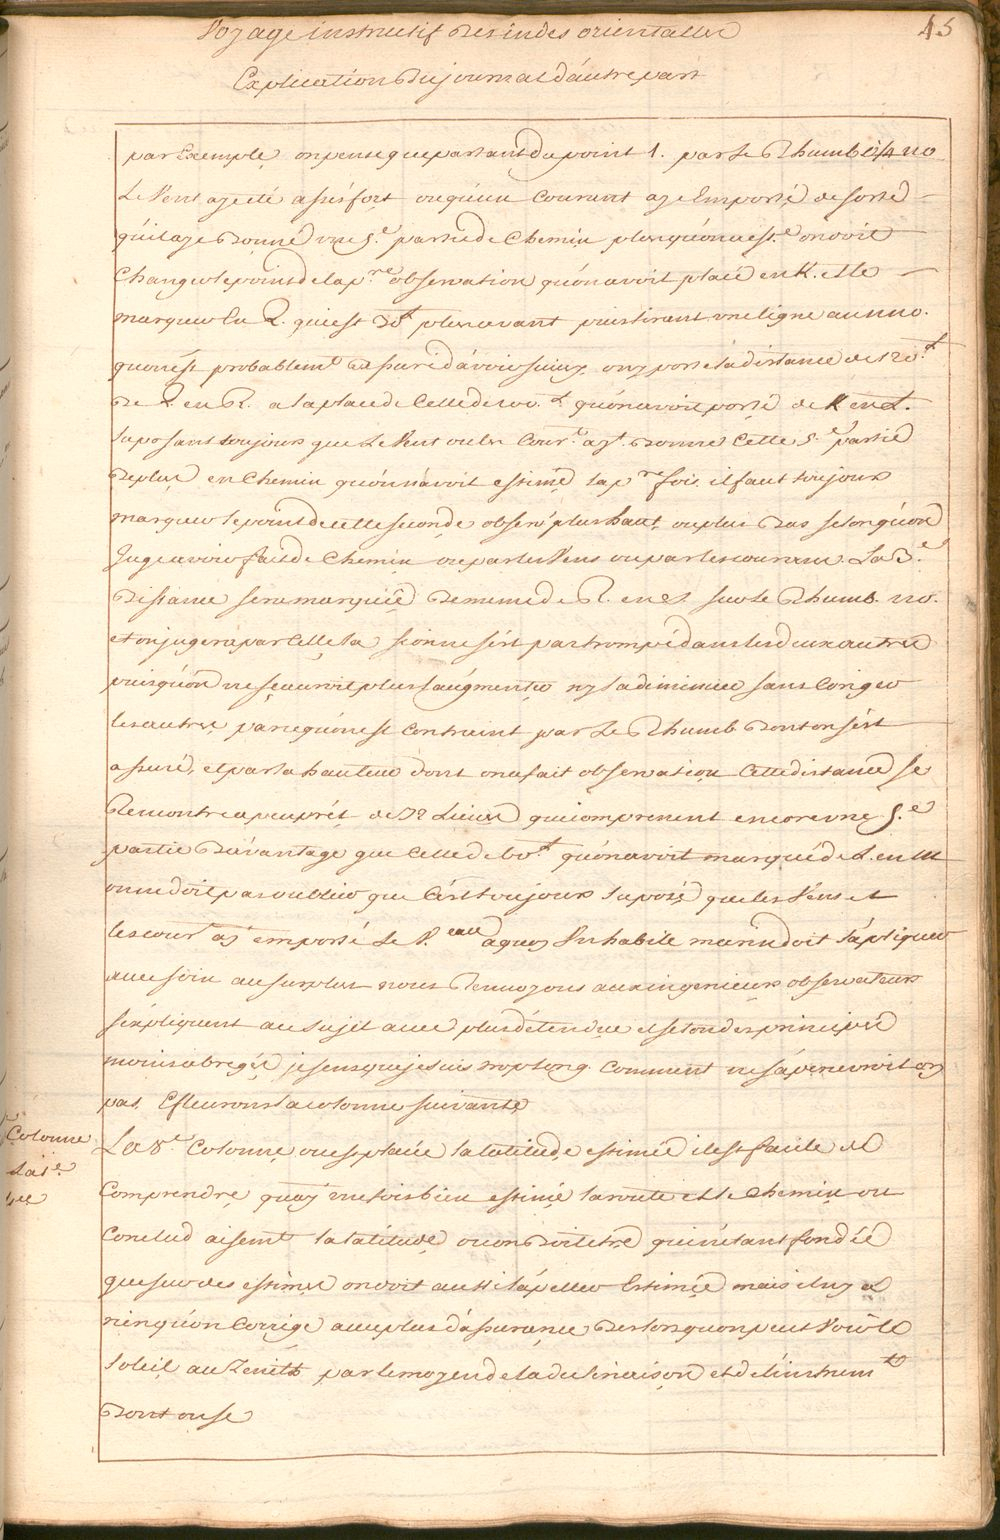 Voyage instructif Des indes orientalles
45
Explication Du journal d'autre part
par Exemple, on pense que partant du point 1. par Le Rhumb O¼NO
Le Vent aye été assés fort ou qu'un Courant aye Emporté de sorte
qu'il aye Donné une 5.e partie de Chemin plus qu'on n'est.e on doit
Changer le point de la p.re observation qu'on avoit placé en K. et le
marquer En Q. qui est 20.l plus avant puis tirant une ligne au NNO.
qu'on est probablem.t assuré d'avoir suivy, on y porte la distance de 120.l
De Q. en R. a la place de Celle de 100.l qu'on avoit porté de K en L.
suposant toujours que Le Vent ou les Cour.s ay.t Donné Cette 5.e partie
De plus en Chemin qu'on n'avoit estimé la p.re fois. il faut toujours
marquer le point de cette seconde observ.n plus haut, ou plus Bas selon qu'on
Juge avoir fait de Chemin ou par les Vens ou par les courans. La 3.e
Distance sera marquée De meme de R. en S. sur Le Rhumb. NO.
et on jugera par Celle la si on ne s'est pas trompé dans les deux autres
puis qu'on ne sçauroit plus l'augmenter ny la diminuer sans Coriger
les autres parce qu'on est Contraint par Le Rhumb Dont on s'est
assuré, et par la hauteur dont on a fait observation Cette distance se
Rencontre a peu prét de 72 Lieues qui comprenent encore une 5.e
partie D'avantage que Celle de 60.l qu'on avoit marqué de L. en M
on ne doit pas oublier que C'est toujours suposé que les Vens et
les cour.s ay.t emporté Le V.eau a quoy Un habile marin doit s'apliquer
avec soin au surplus nous Renvoyons aux ingenieux observateurs
s'expliquent au sujet avec plus d'étendue et selon des principes
moins abregés, je sens que je suis trop long. Comment ne s'apercevroit on
pas. Efleurons la colonne suivante
Colonne
La 8.e Colonne ou est placée la latitude estimée il est facile de
Lat.e
Comprendre, qu'ay une fois bien estimé la route et le Chemin on
Conclud aisem.t la latitude ou on Doit etre qui n'etant fondée
que sur des estimes on doit aussi l'apeller Estimée mais il n'y a
rien qu'on Corrige avec plus d'assurance Des lors qu'on peut Voir le
Soleil au Zenith par le moyen de la declinaison et de l'instrum.to
Dont on se